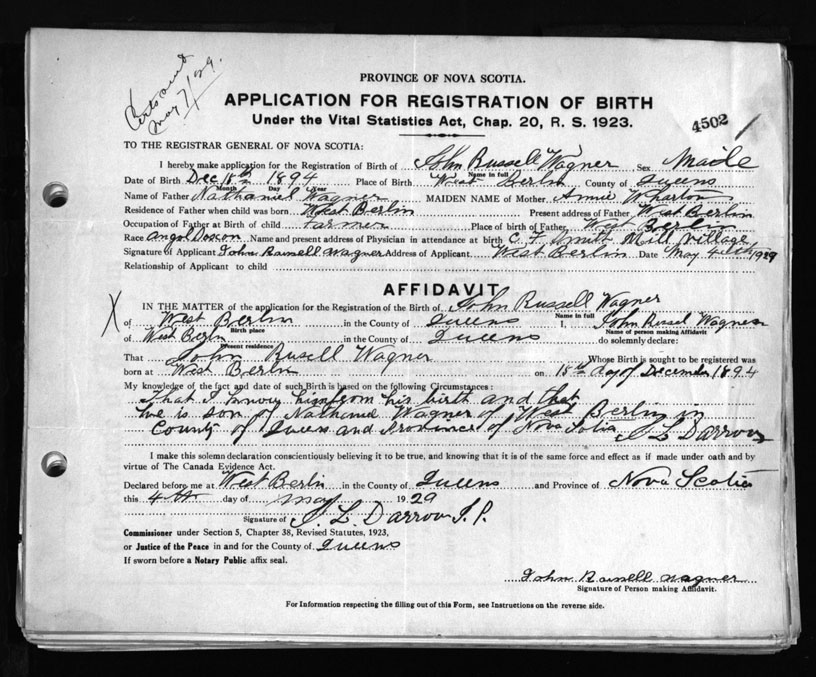 Cert sent
May 7/29.
PROVINCE OF NOVA SCOTIA.
APPLICATION FOR REGISTRATION OF BIRTH
Under the Vital Statistics Act, Chap. 20, R. S. 1923.
4502
TO THE REGISTRAR GENERAL OF NOVA SCOTIA:
I hereby make application for the Registration of Birth of John Russell Wagner Sex Maile
Name in full
Date of Birth Dec 18th 1894 Place of Birth West Berlin County of Queens
Month Day Year
Name of Father Nathaniel Wagner MAIDEN NAME of Mother Annie Wharton
Residence of Father when child was born West Berlin Present address of Father West Berlin
Occupation of Father at Birth of child Farmer Place of birth of Father, West Berlin
Race Angol Doscon Name and present address of Physician in attendance at birth C. F. Smith Mill Village
Signature of Applicant John Russell Wagner Address of Applicant West Berlin Date May 4th 1929
Relationship of Applicant to child
AFFIDAVIT
X
IN THE MATTER of the application for the Registration of the Birth of John Russell Wagner
Name in full
of West Berlin in the County of Queens I, John Russel Wagner
Birth place Name of person making Affidavit
of West Berlin in the County of Queens do solemnly declare:
Present residence
That John Rusell Wagner Whose Birth is sought to be registered was
born at West Berlin on 18th day of December 1894
My knowledge of the fact and date of such Birth is based on the following Circumstances:
That I know him from his birth and that
he is son of Nathaniel Wagner of West Berlin in
County of Queens and Province of Nova Scotia J L Darrow
I make this solemn declaration conscientiously believing it to be true, and knowing that it is of the same force and effect as if made under oath and by
virtue of The Canada Evidence Act.
Declared before me at West Berlin in the County of Queens and Province of Nova Scotia
this 4th day of May 1929
Signature of J. L. Darrow J. P.
Commissioner under Section 5, Chapter 38, Revised Statutes, 1923,
or Justice of the Peace in and for the County of Queens
If sworn before a Notary Public affix seal.
John Russell Wagner
Signature of Person making Affidavit.
For Information respecting the filling out of this Form, see Instructions on the reverse side.